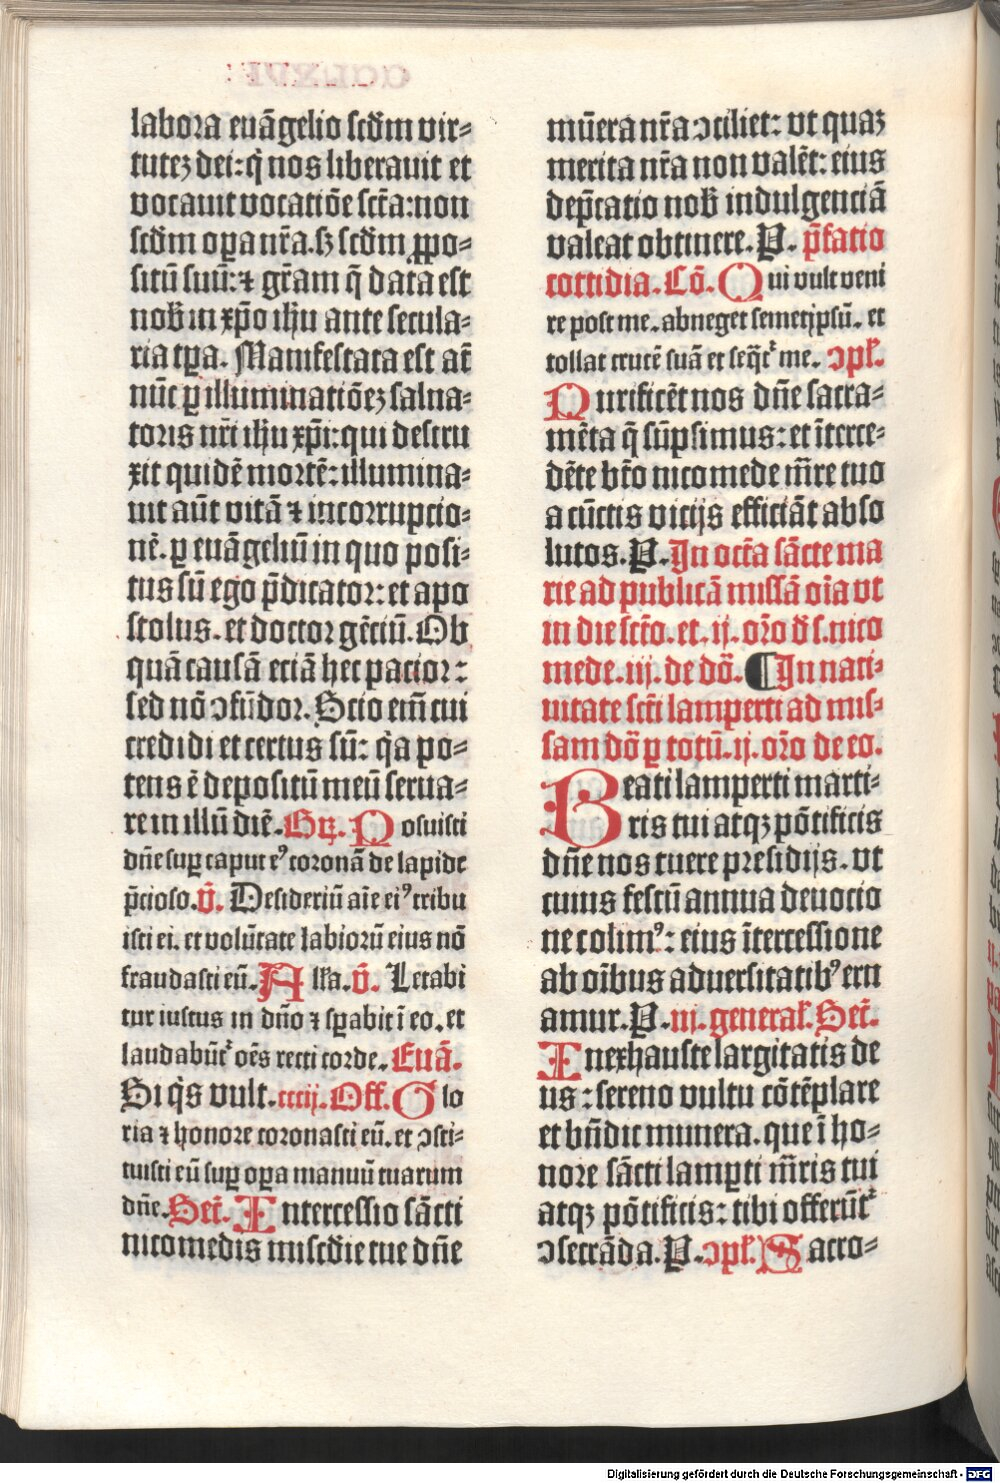 labora euãgelio scd̃m vir-
tutez dei: q̃ nos liberauit et
vocauit vocatiõe scťa: non
scd̃m oꝑa nr̃a. sꝫ scd̃m ꝓpo-
sitũ suũ: ⁊ gr̃am q̃ data est
nob̃ in xp̃o ihũ ante secula-
ria tꝑa. Manifestata est aũt
nũc ꝑ illuminatiõeꝫ salua-
toris nr̃i ihũ xp̃i: qui destru
xit quidẽ mortẽ: illumina-
uit aũt vitã ⁊ incorrupcio-
nẽ. ꝑ euãgeliũ in quo posi-
tus sũ ego p̃dicator: et apo
stolus. et doctor gẽciũ. Ob
quã causã eciã hec pacior:
sed nõ ↄfũdor. Scio em̃ cui
credidi et certus sũ: q̃a po-
tens ẽ depositũ meũ serua-
re in illũ diẽ. Gꝝ. Posuisti
dñe suꝑ caput eꝰ coronã de lapide
p̃cioso. v̉. Desideriũ aĩe eiꝰ tribu
isti ei. et volũtate labiorũ eius nõ
fraudasti eũ. Alla. v̉. Letabi
tur iustus in dño ⁊ sꝑabit ĩ eo. et
laudabũt᷑ oẽs recti corde. Euã.
Si q̃s vult. cccij. Off. Glo
ria ⁊ honore coronasti eũ. et ↄsti-
tuisti eũ suꝑ oꝑa manuũ tuarum
dñe. Secr̃. Intercessio sãcti
nicomedis miscd̃ie tue dñe
mũera nr̃a ↄciliet: vt quaꝫ
merita nr̃a non valẽt: eius
dep̃catio nob̃ indulgenciã
valeat obtinere. P. p̃fatio
cottidia. Cõ. Qui vult veni
re post me. abneget semetip̃sũ. et
tollat crucẽ suã et seq̃t᷑ me. ↄpl̃.
Purificẽt nos dñe sacra-
mẽta q̃ sũpsimus: et ĩterce-
dẽte bt̃o nicomede m̃re tuo
a cũctis vicijs efficiãt abso
lutos. P. In octa sãcte ma
rie ad publicã missã oĩa vt
in die scto. et. ij. or̃o d̃ s. nico
mede. iij. de dõ. ¶ In nati-
uitate scti lamperti ad mis-
sam dõ ꝑ totũ. ij. or̃o de eo.
Beati lamperti marti-
ris tui atqꝫ põtificis
dñe nos tuere presidijs. vt
cuius festũ annua deuocio
ne colimꝰ: eius ĩtercessione
ab oĩbus aduersitatibꝰ eru
amur. P. iij. general̃. Secr̃.
Inexhauste largitatis de
us: sereno vultu cõtẽplare
et bñdic munera. que ĩ ho-
nore sãcti lamꝑti m̃ris tui
atqꝫ põtificis: tibi offerũt᷑
ↄsecrãda. P. ↄpl̃. Sacro-
Digitalisierung gefördert durch die Deutsche Forschungsgemeinschaft - DFG